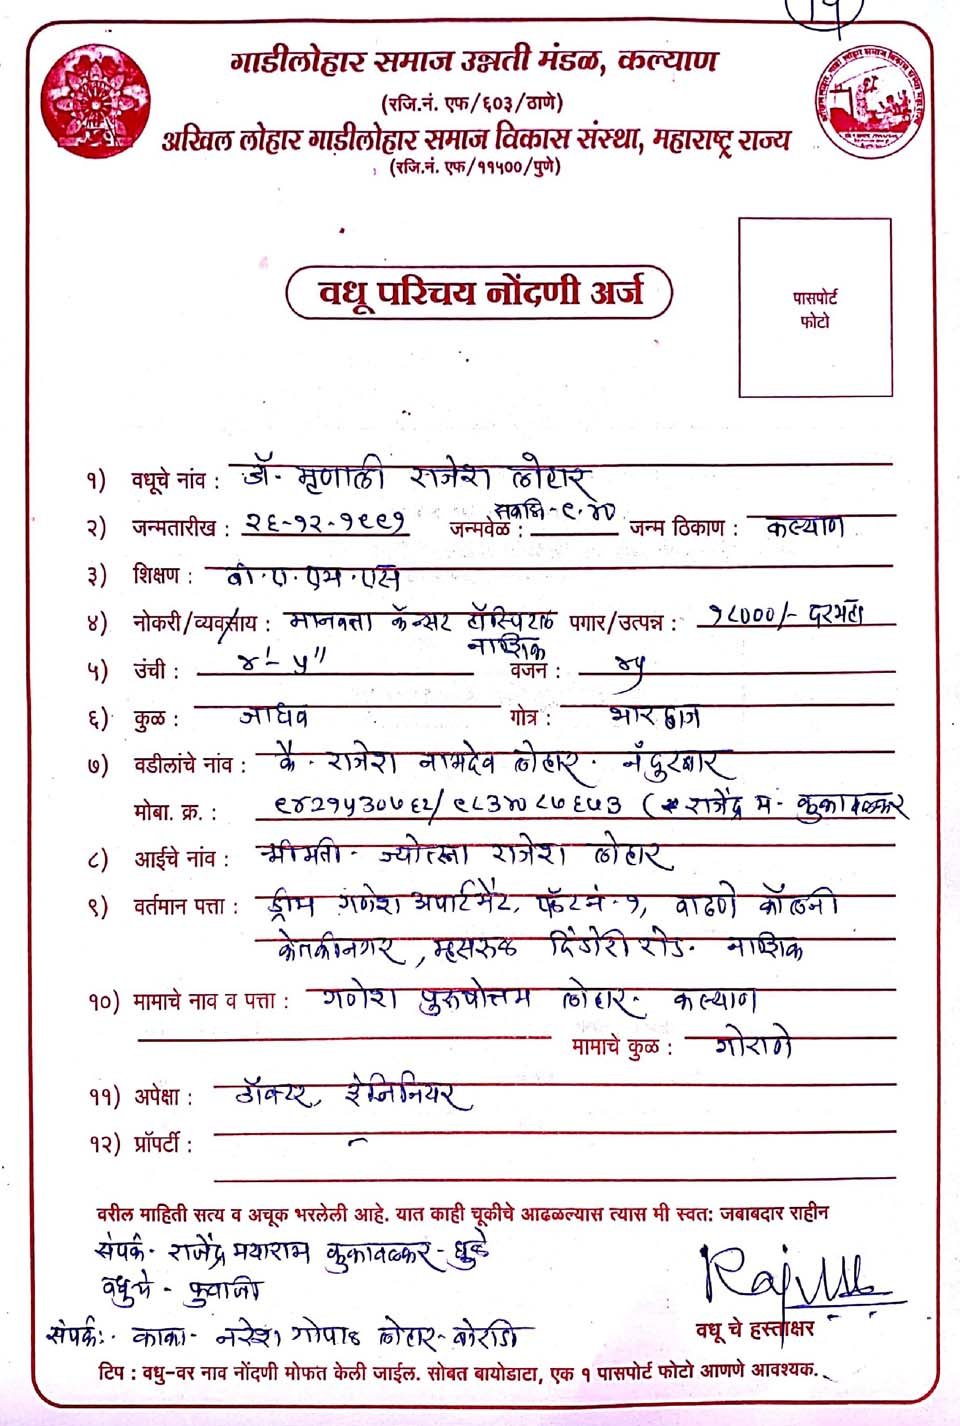 १५
गाडीलोहार समाज उन्नती मंडळ, कल्याण
(रजि.नं. एफ/६०३/ठाणे)
अखिल लोहार गाडीलोहार समाज विकास संस्था, महाराष्ट्र राज्य
(रजि.नं. एफ/११५००/पुणे)
वधू परिचय नोंदणी अर्ज
पासपोर्ट
फोटो
१) वधूचे नांव : डॉ. मृणाली राजेश लोहार
२) जन्मतारीख : २६-१२-१९९१ जन्मवेळ : सकाळी - ९.४० जन्म ठिकाण : कल्याण
३) शिक्षण : बी.ए.एम.एस
४) नोकरी/व्यवसाय : मानवता कॅन्सर हॉस्पिटल नाशिक पगार/उत्पन्न : १८०००/- दरमहा
५) उंची : ४'-५" वजन : ४५
६) कुळ : जाधव गोत्र : भारद्वाज
७) वडीलांचे नांव : कै. राजेश नामदेव लोहार. नंदुरबार
मोबा. क्र. : ९४२१५३०७६८/९८३४०८७६५३ (राजेंद्र म. कुकावळकर
८) आईचे नांव : श्रीमती. ज्योत्स्ना राजेश लोहार
९) वर्तमान पत्ता : ड्रीम गणेश अपार्टमेंट, फ्लॅट नं-१, वाढणे कॉलनी
केतकीनगर, म्हसरुळ दिंडोरी रोड. नाशिक
१०) मामाचे नाव व पत्ता : गणेश पुरुषोत्तम लोहार. कल्याण
मामाचे कुळ : गोराणे
११) अपेक्षा : डॉक्टर, इंजिनियर
१२) प्रॉपर्टी : -
वरील माहिती सत्य व अचूक भरलेली आहे. यात काही चूकीचे आढळल्यास त्यास मी स्वत: जबाबदार राहीन
संपर्क- राजेंद्र मयाराम कुकावळकर - धुळे
वधुचे - फुवाजी
वधू चे हस्ताक्षर
संपर्क:- काका- नरेश गोपाळ लोहार - बोरडी
टिप : वधु-वर नाव नोंदणी मोफत केली जाईल. सोबत बायोडाटा, एक १ पासपोर्ट फोटो आणणे आवश्यक.